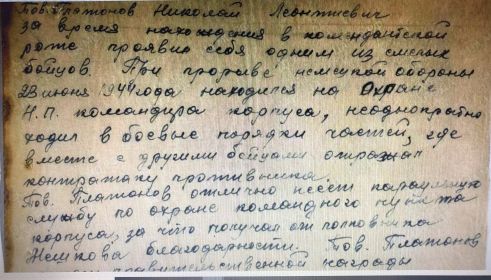 Тов. Платонов Николай Леонтиевич
за время нахождения в комендантской
роте проявил себя одним из смелых
бойцов. При прорыве немецкой обороны
23 июня 1944 года находился на охране
Н.П. командира корпуса, неоднократно
ходил в боевые порядки частей, где
вместе с другими бойцами отражал
контратаку противника.
Тов. Платонов отлично несет караульную
службу по охране командного пункта
корпуса, за что получал от полковника
благодарности. Тов. Платонов
правительственной награды